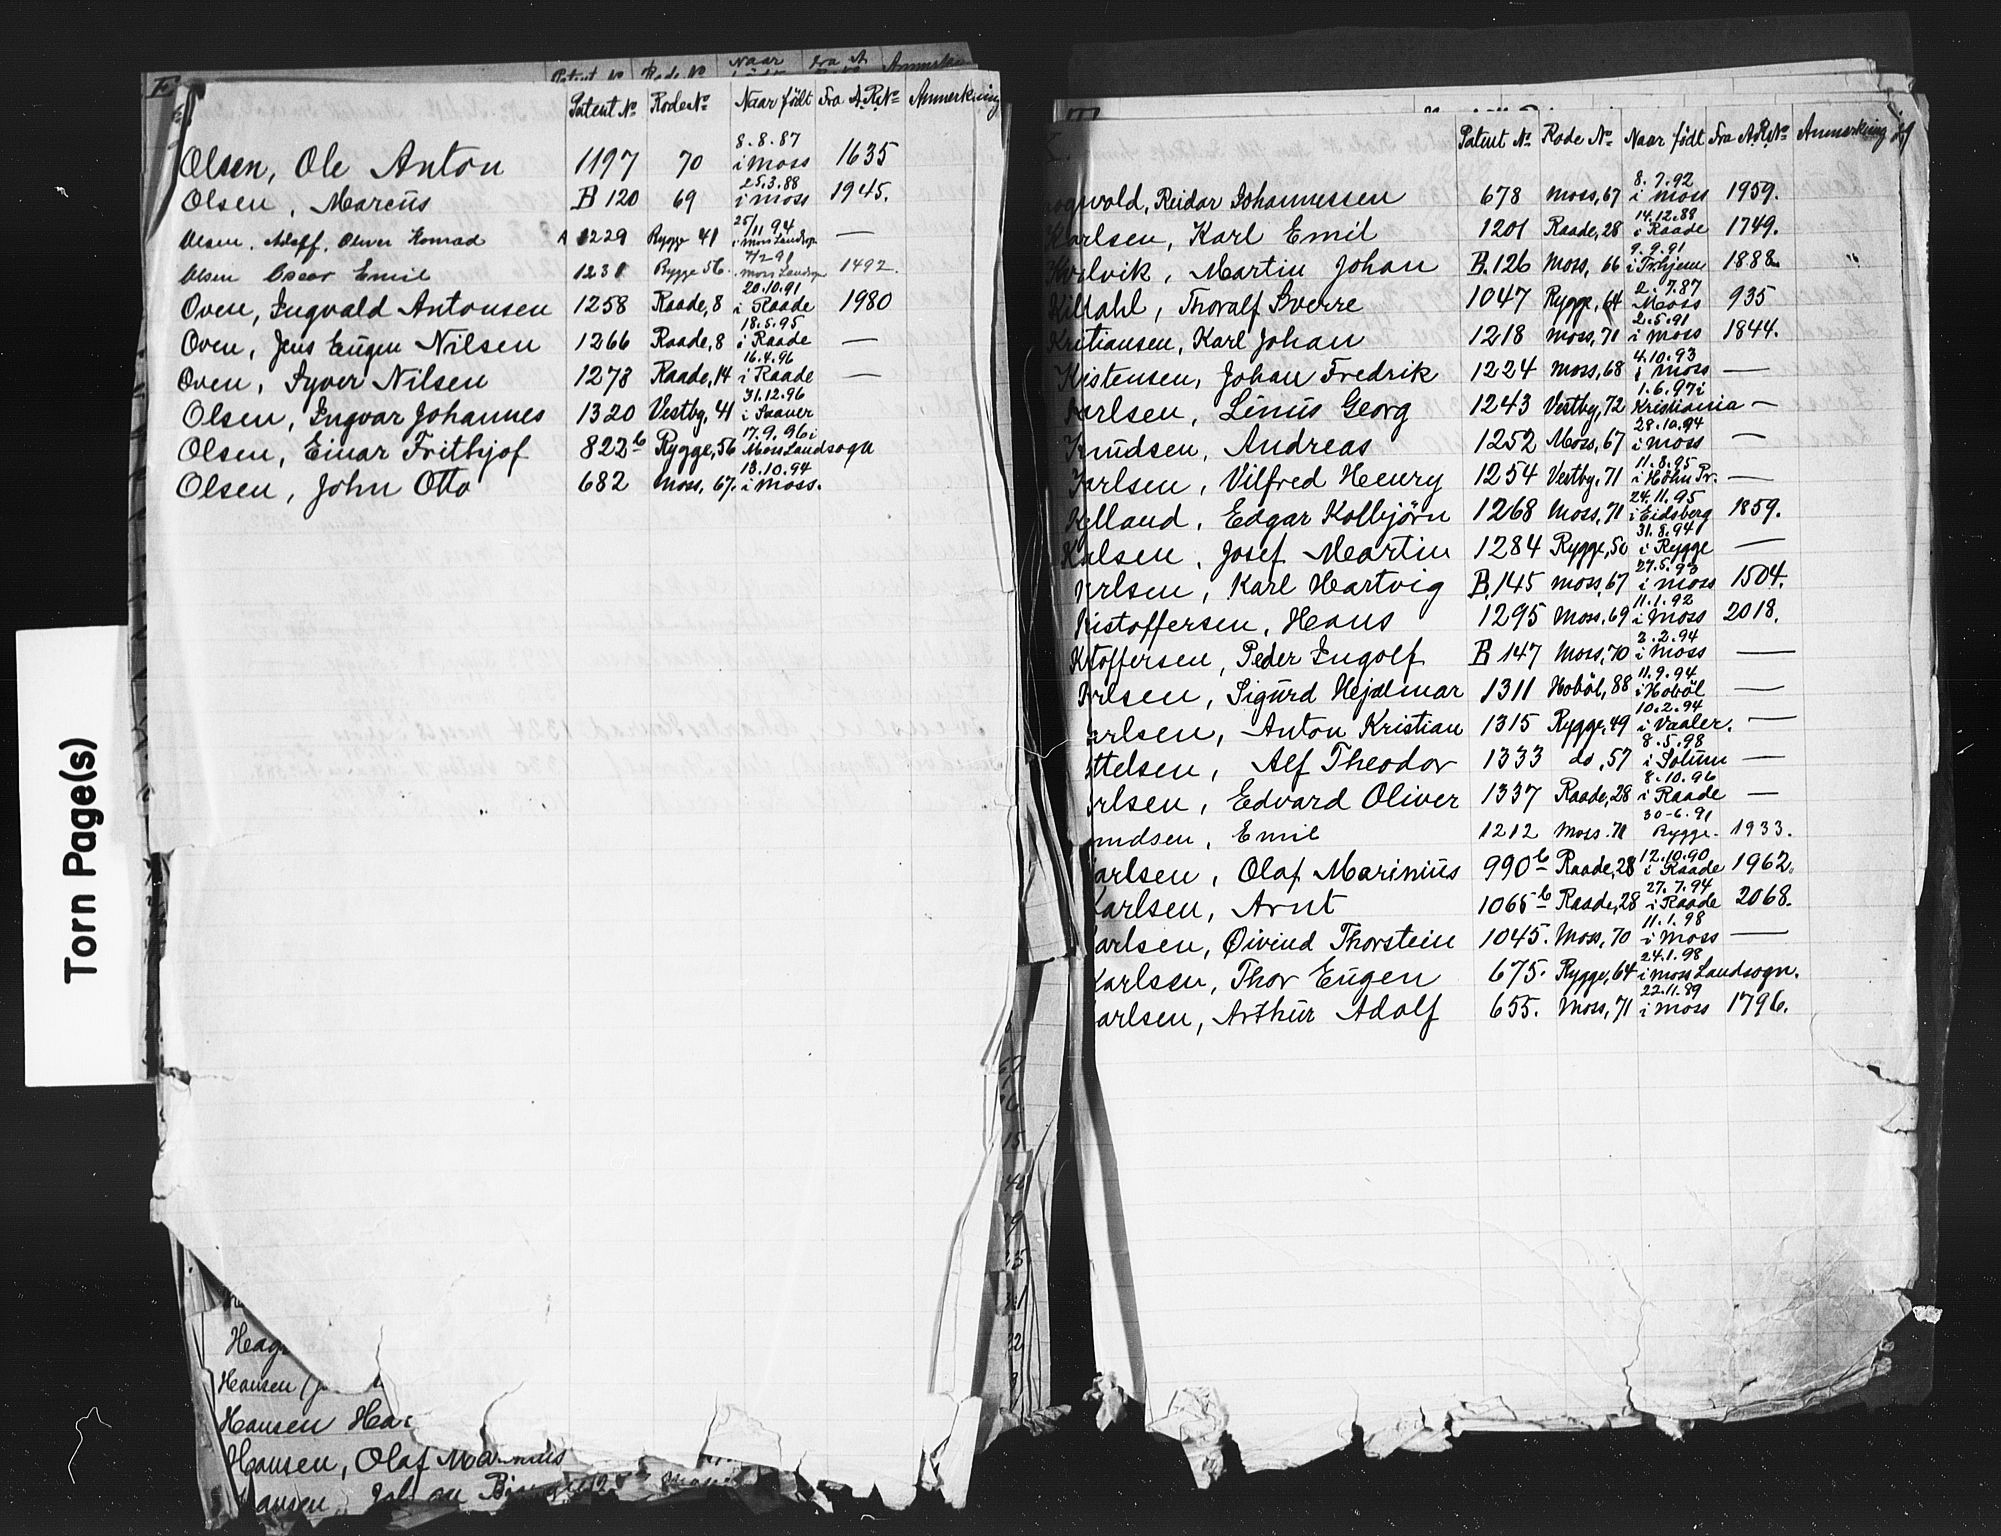 Torn Page(s)
Patent № Rode № Naar født Fra A.R.№ Anmerkning
Olsen, Ole Anton 1197 70 8.8.87 i Moss 1635
Olsen, Marcus B 120 69 25.3.88 i Moss 1945.
Olsen, Adolf, Oliver Konrad A 1229 Rygge 41 25/11 94 i Moss Landsogn —
Olsen Oscar Emil 1231 Rygge 56 7/2 91 Moss Landsogn 1492.
Oven, Ingvald Antonsen 1258 Raade, 8 20.10.91 i Raade 1980
Oven, Jens Eugen Nilsen 1266 Raade, 8 18.5.95 i Raade —
Oven, Syver Nilsen 1278 Raade, 14 16.4.96 i Raade —
Olsen, Ingvar Johannes 1320 Vestby, 41 31.12.96 i Saaner
Olsen, Einar Frithjof 822 b Rygge, 56 17.9.96 i Moss Landsogn
Olsen, John Otto 682 Moss, 67. 13.10.94 i Moss.
Hansen
Hansen
Hansen, Olaf
Hansen
Patent № Rode № Naar født Fra A.R№ Anmerkning
Reidar Johannessen 678 Moss, 67 8.7.92 i Moss 1959.
Karlsen, Karl Emil 1201 Raade, 28 14.12.88 i Raade 1749.
Kvilvik, Martin Johan B.126 Moss, 66 9.9.91 1888. "
Kildahl, Thoralf Sverre 1047 Rygge, 64 2.7.87 Moss 935
Kristiansen, Karl Johan 1218 Moss, 71 2.5.91 i Moss 1844.
Kristensen, Johan Fredrik 1224 Moss, 68 4.10.93 i Moss —
Karlsen, Linus Georg 1243 Vestby, 72 1.6.97 i Kristiania —
Knudsen, Andreas 1252 Moss, 67 28.10.94 i Moss —
Karlsen, Vilfred Henry 1254 Vestby, 71 11.8.95 i Hölun Pr. —
Kjelland, Edgar Kolbjörn 1268 Moss, 71 24.11.95 i Eidsberg 1859.
Karlsen, Josef Martin 1284 Rygge, 50 31.8.94 i Rygge —
Karlsen, Karl Hartvig B.145 Moss, 67 27.5.93 i Moss 1504.
Kristoffersen, Hans 1295 Moss, 69 11.1.92 i Moss 2018.
Kristoffersen, Peder Ingolf B 147 Moss, 70 3.2.94 i Moss —
Karlsen, Sigurd Hejalmar 1311 Hoböl, 88 11.9.94 i Hoböl —
arlsen, Anton Kristian 1315 Rygge, 49 10.2.94 i Vaaler. —
ttelsen, Alf Theodor 1333 do, 57 8.5.98 i Solum —
rlsen, Edvard Oliver 1337 Raade, 28 8.10.96 i Raade —
nudsen, Emil 1212 Moss. 71 30-6.91 Rygge. 1933.
Karlsen, Olaf Marinius 990 b Raade, 28 12.10.90 i Raade 1962.
Karlsen, Arnt 1065 b Raade, 28 27.7.94 i Raade 2068.
Karlsen, Öivind Thorstein 1045. Moss, 70 11.1.98 i Moss —
Karlsen, Thor Eugen 675. Rygge, 64 24.1.98 i Moss Landsogn.
Karlsen, Arthur Adolf 655. Moss, 71 22.11.89 i Moss 1796.